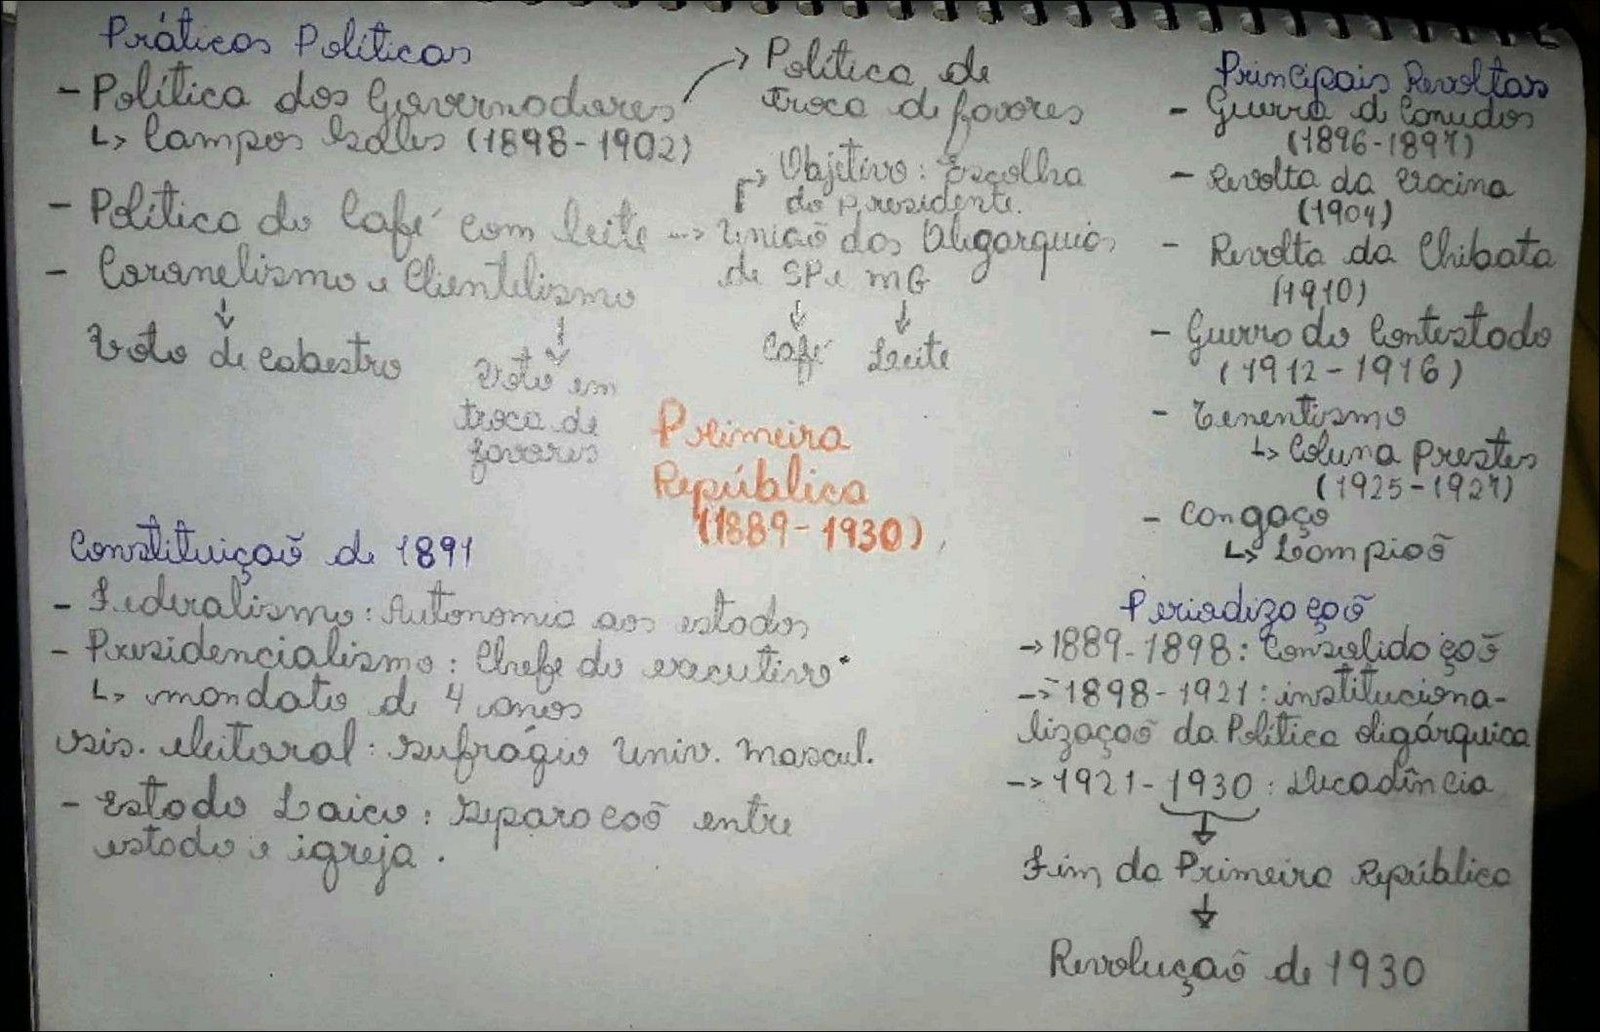 Práticas Políticas
- Política dos Governadores
↳ Campos Sales (1898-1902)
→ Política de
troca de favores
- Política do Café com leite --> União das Oligarquias
de SP e MG
↓ Café ↓ Leite
↱ Objetivo: Escolha
do presidente.
- Coronelismo e Clientelismo
↓ Voto de cabestro
↓ Voto em
troca de
favores
Primeira
República
(1889-1930)
Constituição de 1891
- Federalismo: Autonomia aos estados
- Presidencialismo: Chefe do executivo
↳ mandato de 4 anos
sis. eleitoral: sufrágio univ. mascul.
- Estado Laico: Separação entre
estado e igreja.
Principais Revoltas
- Guerra d Canudos
(1896-1897)
- Revolta da Vacina
(1904)
- Revolta da Chibata
(1910)
- Guerra do Contestado
(1912-1916)
- Tenentismo
↳ Coluna Prestes
(1925-1927)
- Cangaço
↳ Lampião
Periodização
→ 1889-1898: Consolidação
-> 1898-1921: instituciona-
lização da Política oligárquica
-> 1921-1930: Decadência
↓
Fim da Primeira República
↓
Revolução de 1930